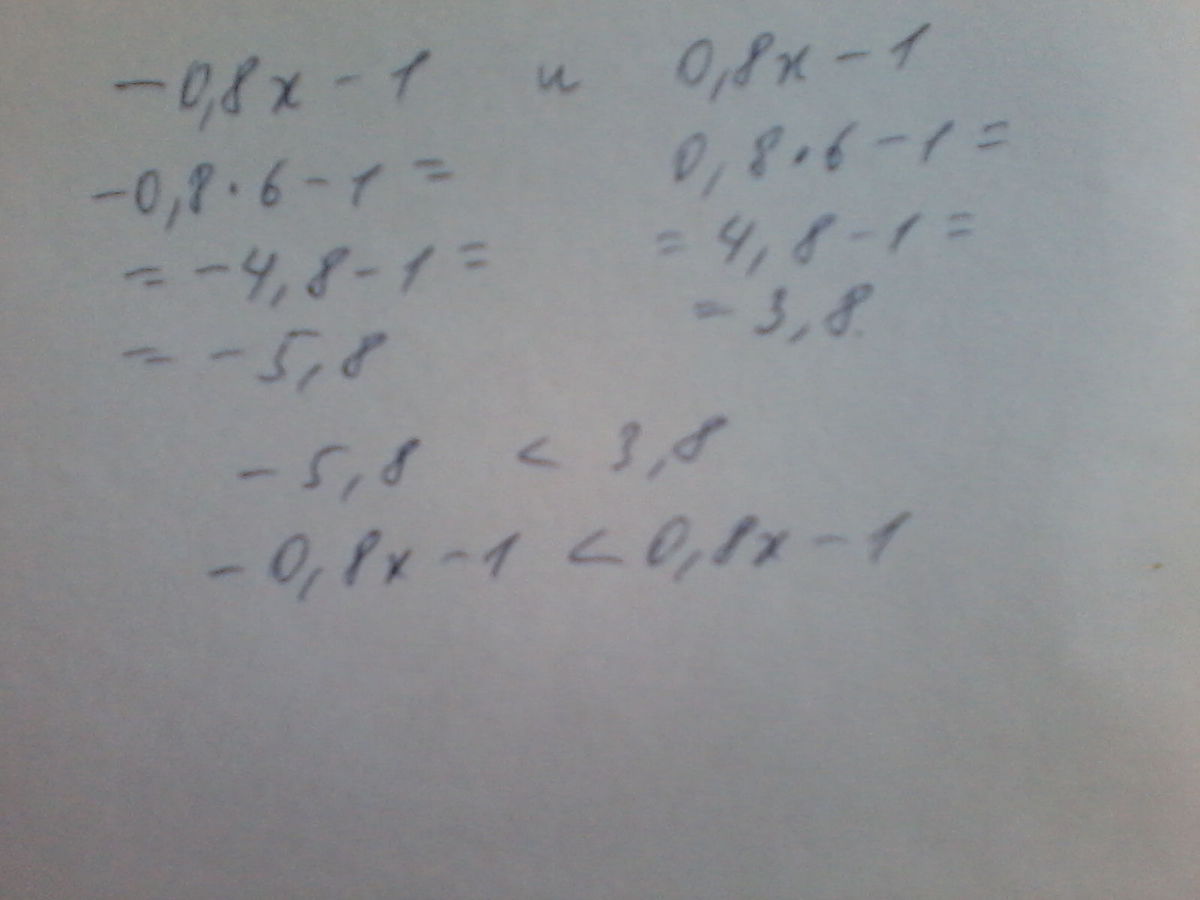 -0,8x - 1 и 0,8x - 1
-0,8·6 - 1 = 0,8·6 - 1 =
= -4,8 - 1 = = 4,8 - 1 =
= -5,8 = 3,8
-5,8 < 3,8
-0,8x - 1 < 0,8x - 1